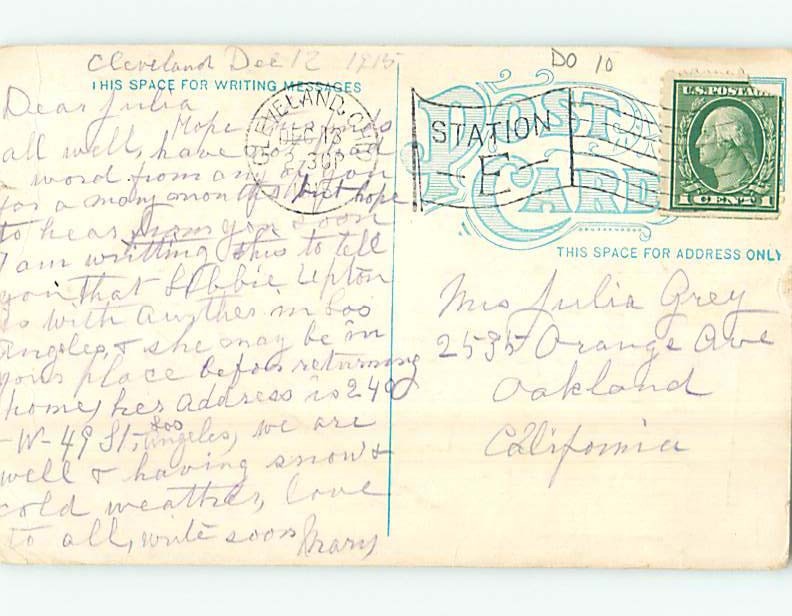 Cleveland Dec 12 1915
DO 10
THIS SPACE FOR WRITING MESSAGES
Dear Julia
Hope
all well, have had
word from any of you
for a many months, but hope
to hear from you soon
I am writting this to tell
you that Libbie Upton
is with Auther in Los
Angeles, & she may be in
your place before returning
home, her address is 240
-W- 49 St, Los Angeles, we are
well & having snow &
cold weather, love
to all, write soon Mary
CLEVELAND, OHIO
DEC 13
30P
STATION
-E-
POST CARD
U.S. POSTAGE
1 CENT 1
THIS SPACE FOR ADDRESS ONLY
Mrs Julia Grey
2535 Orange Ave
Oakland
California